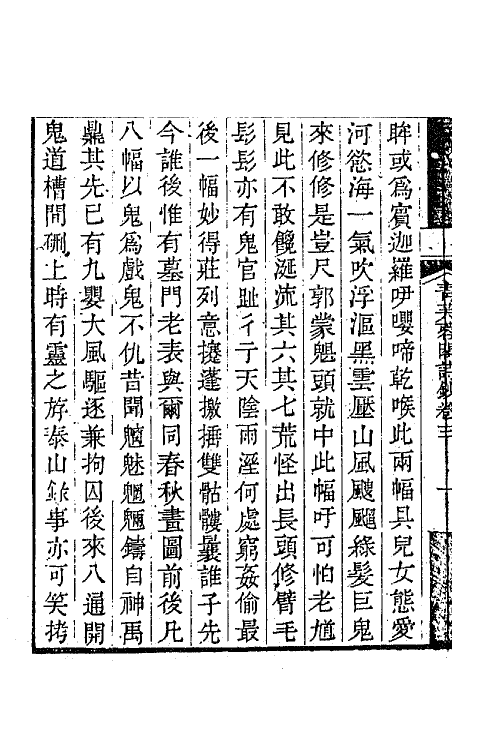 眸或爲賓迦羅吚嚶啼乾喉此兩幅具兒女態愛
河慾海一氣吹浮漚黑雲壓山風颼颼綠髮巨鬼
來修修是豈尺郭蒙魌頭就中此幅吁可怕老尷
見此不敢饞涎流其六其七荒怪出長頭修臂毛
髟髟亦有鬼官趾彳亍天陰雨溼何處窮姦偷最
後一幅妙得莊列意攓蓬撽捶雙骷髏曩誰子先
今誰後惟有墓門老表與爾同春秋畫圖前後凡
八幅以鬼爲戲鬼不仇昔聞魑魅魍魎鑄自神禹
鼎其先已有九嬰大風驅逐兼拘囚後來八通開
鬼道槽間硎上時有靈之斿泰山錄事亦可笑拷
卷三